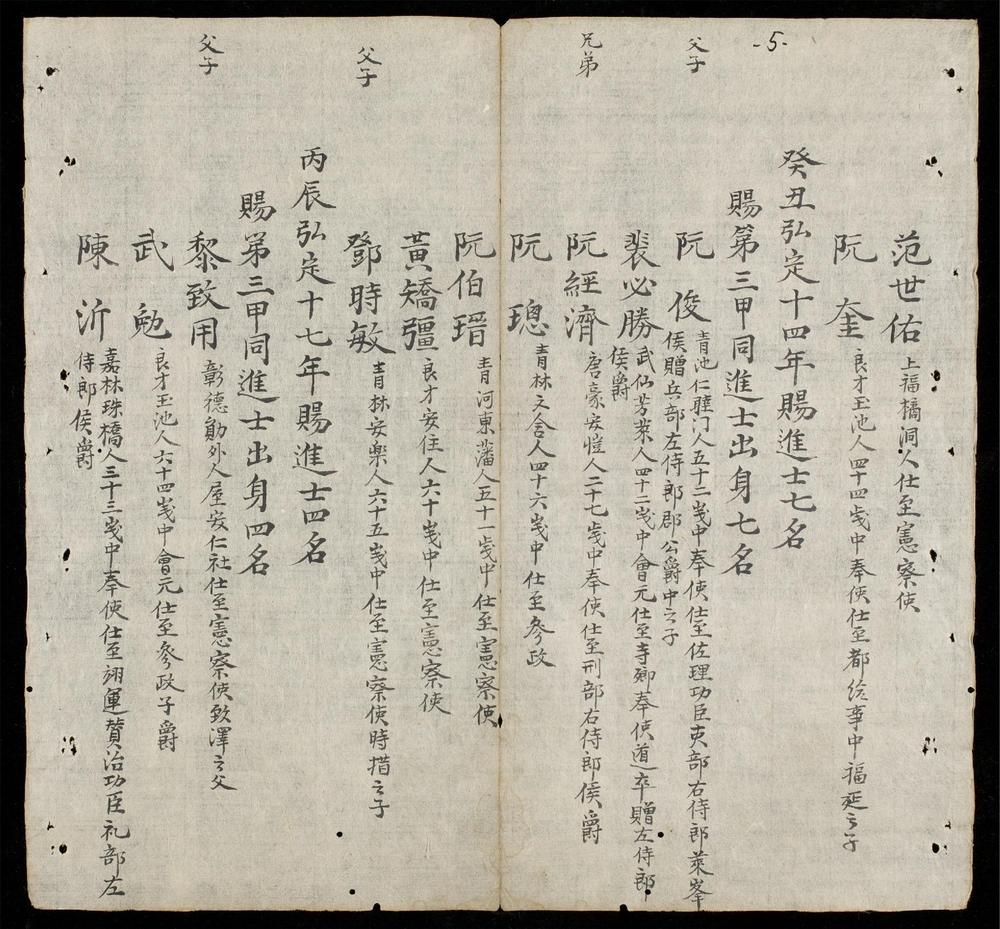 -5-
范世佑 上福橘洞人仕至憲察使
阮奎 良才玉池人四十四歲中奉使仕至都給事中福延之子
癸丑弘定十四年賜進士七名
賜第三甲同進士出身七名
父子
阮俊 青池仁睦门人五十二歲中奉使仕至佐理功臣吏部右侍郎萊峯
侯贈兵部左侍郎郡公爵中之子
裴必勝 武仙芳萊人四十二歲中會元仕至寺卿奉使道卒贈左侍郎
侯爵
兄弟
阮經濟 唐豪安愷人二十七歲中奉使仕至刑部右侍郎侯爵
阮璁 青林文舍人四十六歲中仕至參政
阮伯瑨 青河東藩人五十一歲中仕至憲察使
黃矯彊 良才安住人六十歲中仕至憲察使
父子
鄧時敏 青林安樂人六十五歲中仕至憲察使時措之子
丙辰弘定十七年賜進士四名
賜第三甲同進士出身四名
父子
黎致用 彰德勛外人屋安仁社仕至憲察使致澤之父
武勉 良才玉池人六十四歲中會元仕至參政子爵
陳沂 嘉林珠橋人三十三歲中奉使仕至翊運贊治功臣礼部左
侍郎侯爵